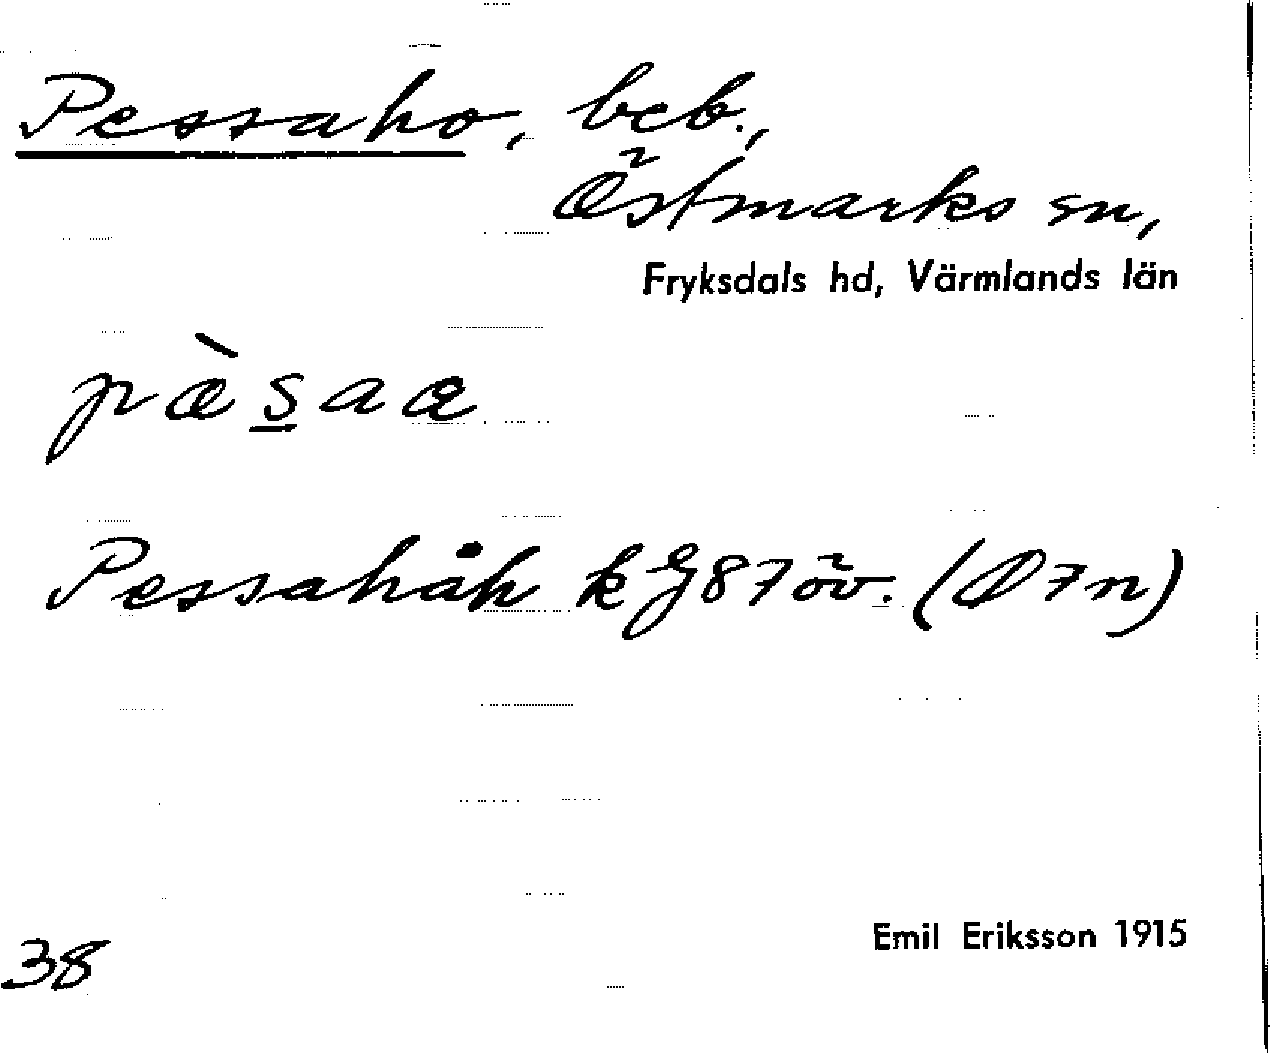 Pessaho, beb.,
Östmarks sn,
Fryksdals hd, Värmlands län
pæ̀s̲aæ
Pessahåh k G 87 öv. (Ö 7 n)
Emil Eriksson 1915
38